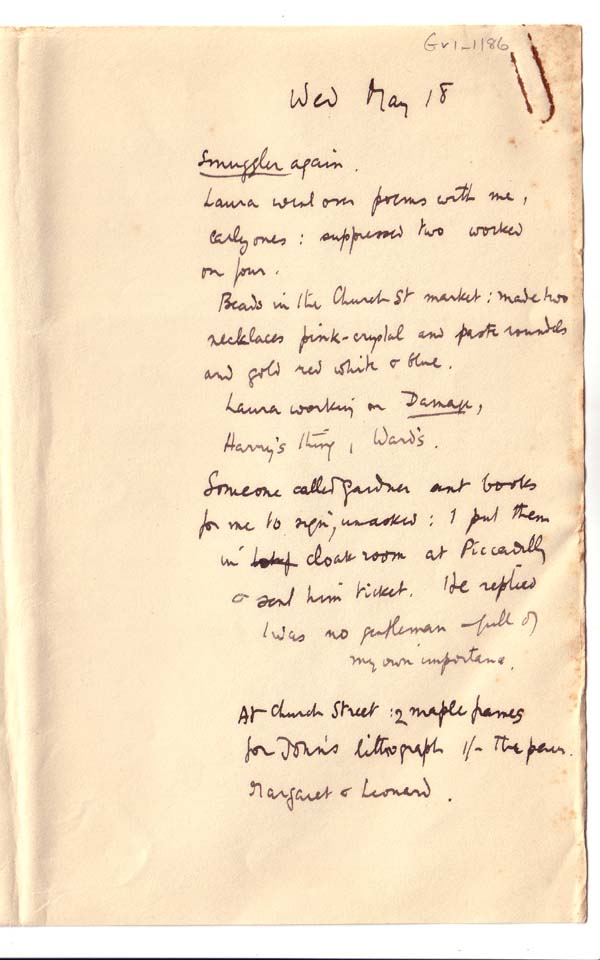 Gv1-1186
Wed May 18
Smuggler again.
Laura went over poems with me,
early ones: suppressed two worked
on four.
Beads in the Church St market: made two
necklaces pink-crystal and paste roundels
and gold red white & blue.
Laura working on Damage,
Harry's thing, Ward's.
Someone called Gardner sent books
for me to sign, unasked: I put them
in cloak room at Piccadilly
& sent him ticket. He replied
I was no gentleman - full of
my own importance.
At Church Street: 2 maple frames
for John's lithograph 1/- the pair.
Margaret & Leonard.